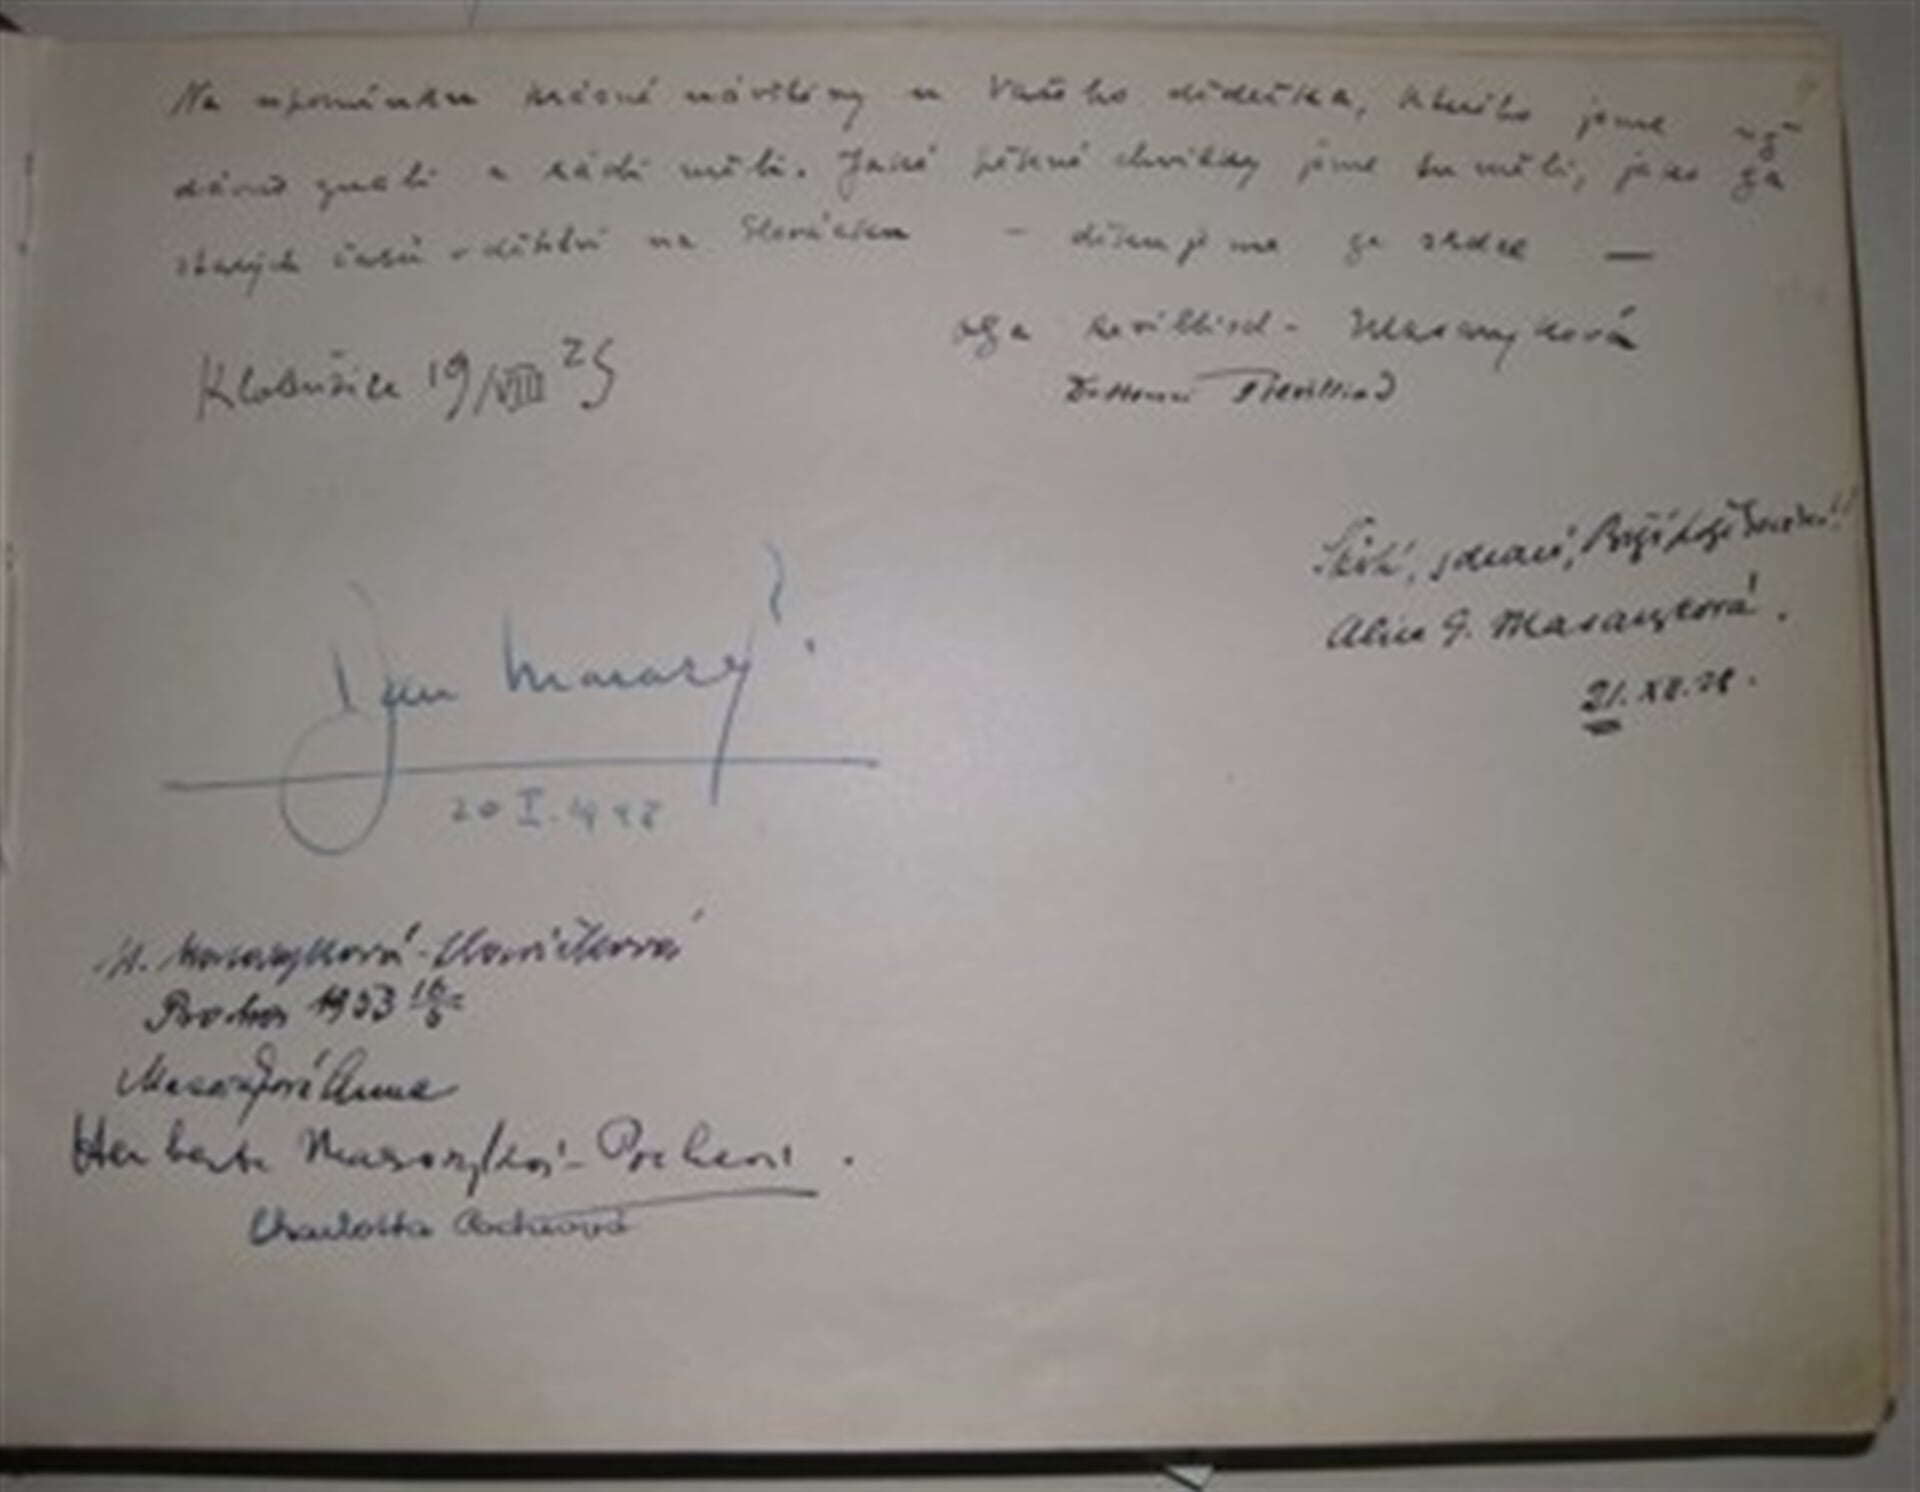 Na upomínku krásné návštěvy u Vašeho dědečka, kterého jme už
dávno znali a rádi měli. Jaké pěkné chvilky jsme tu měli, jako za
starých časů v dětství na Slovácku – děkujeme ze srdce —
Olga Revilliod - Masaryková
Klobušice 19/VIII 25
Dr Henri Revilliod
Štěstí, zdraví, Boží požehnání!!
Alice G. Masaryková.
21. XII. 28.
Jan Masaryk.
20 I. 1948
H. Masaryková-Slavíčková
Masaryková Anna
Herberta Masaryková-Pocheová.
Charlotta Pocheová